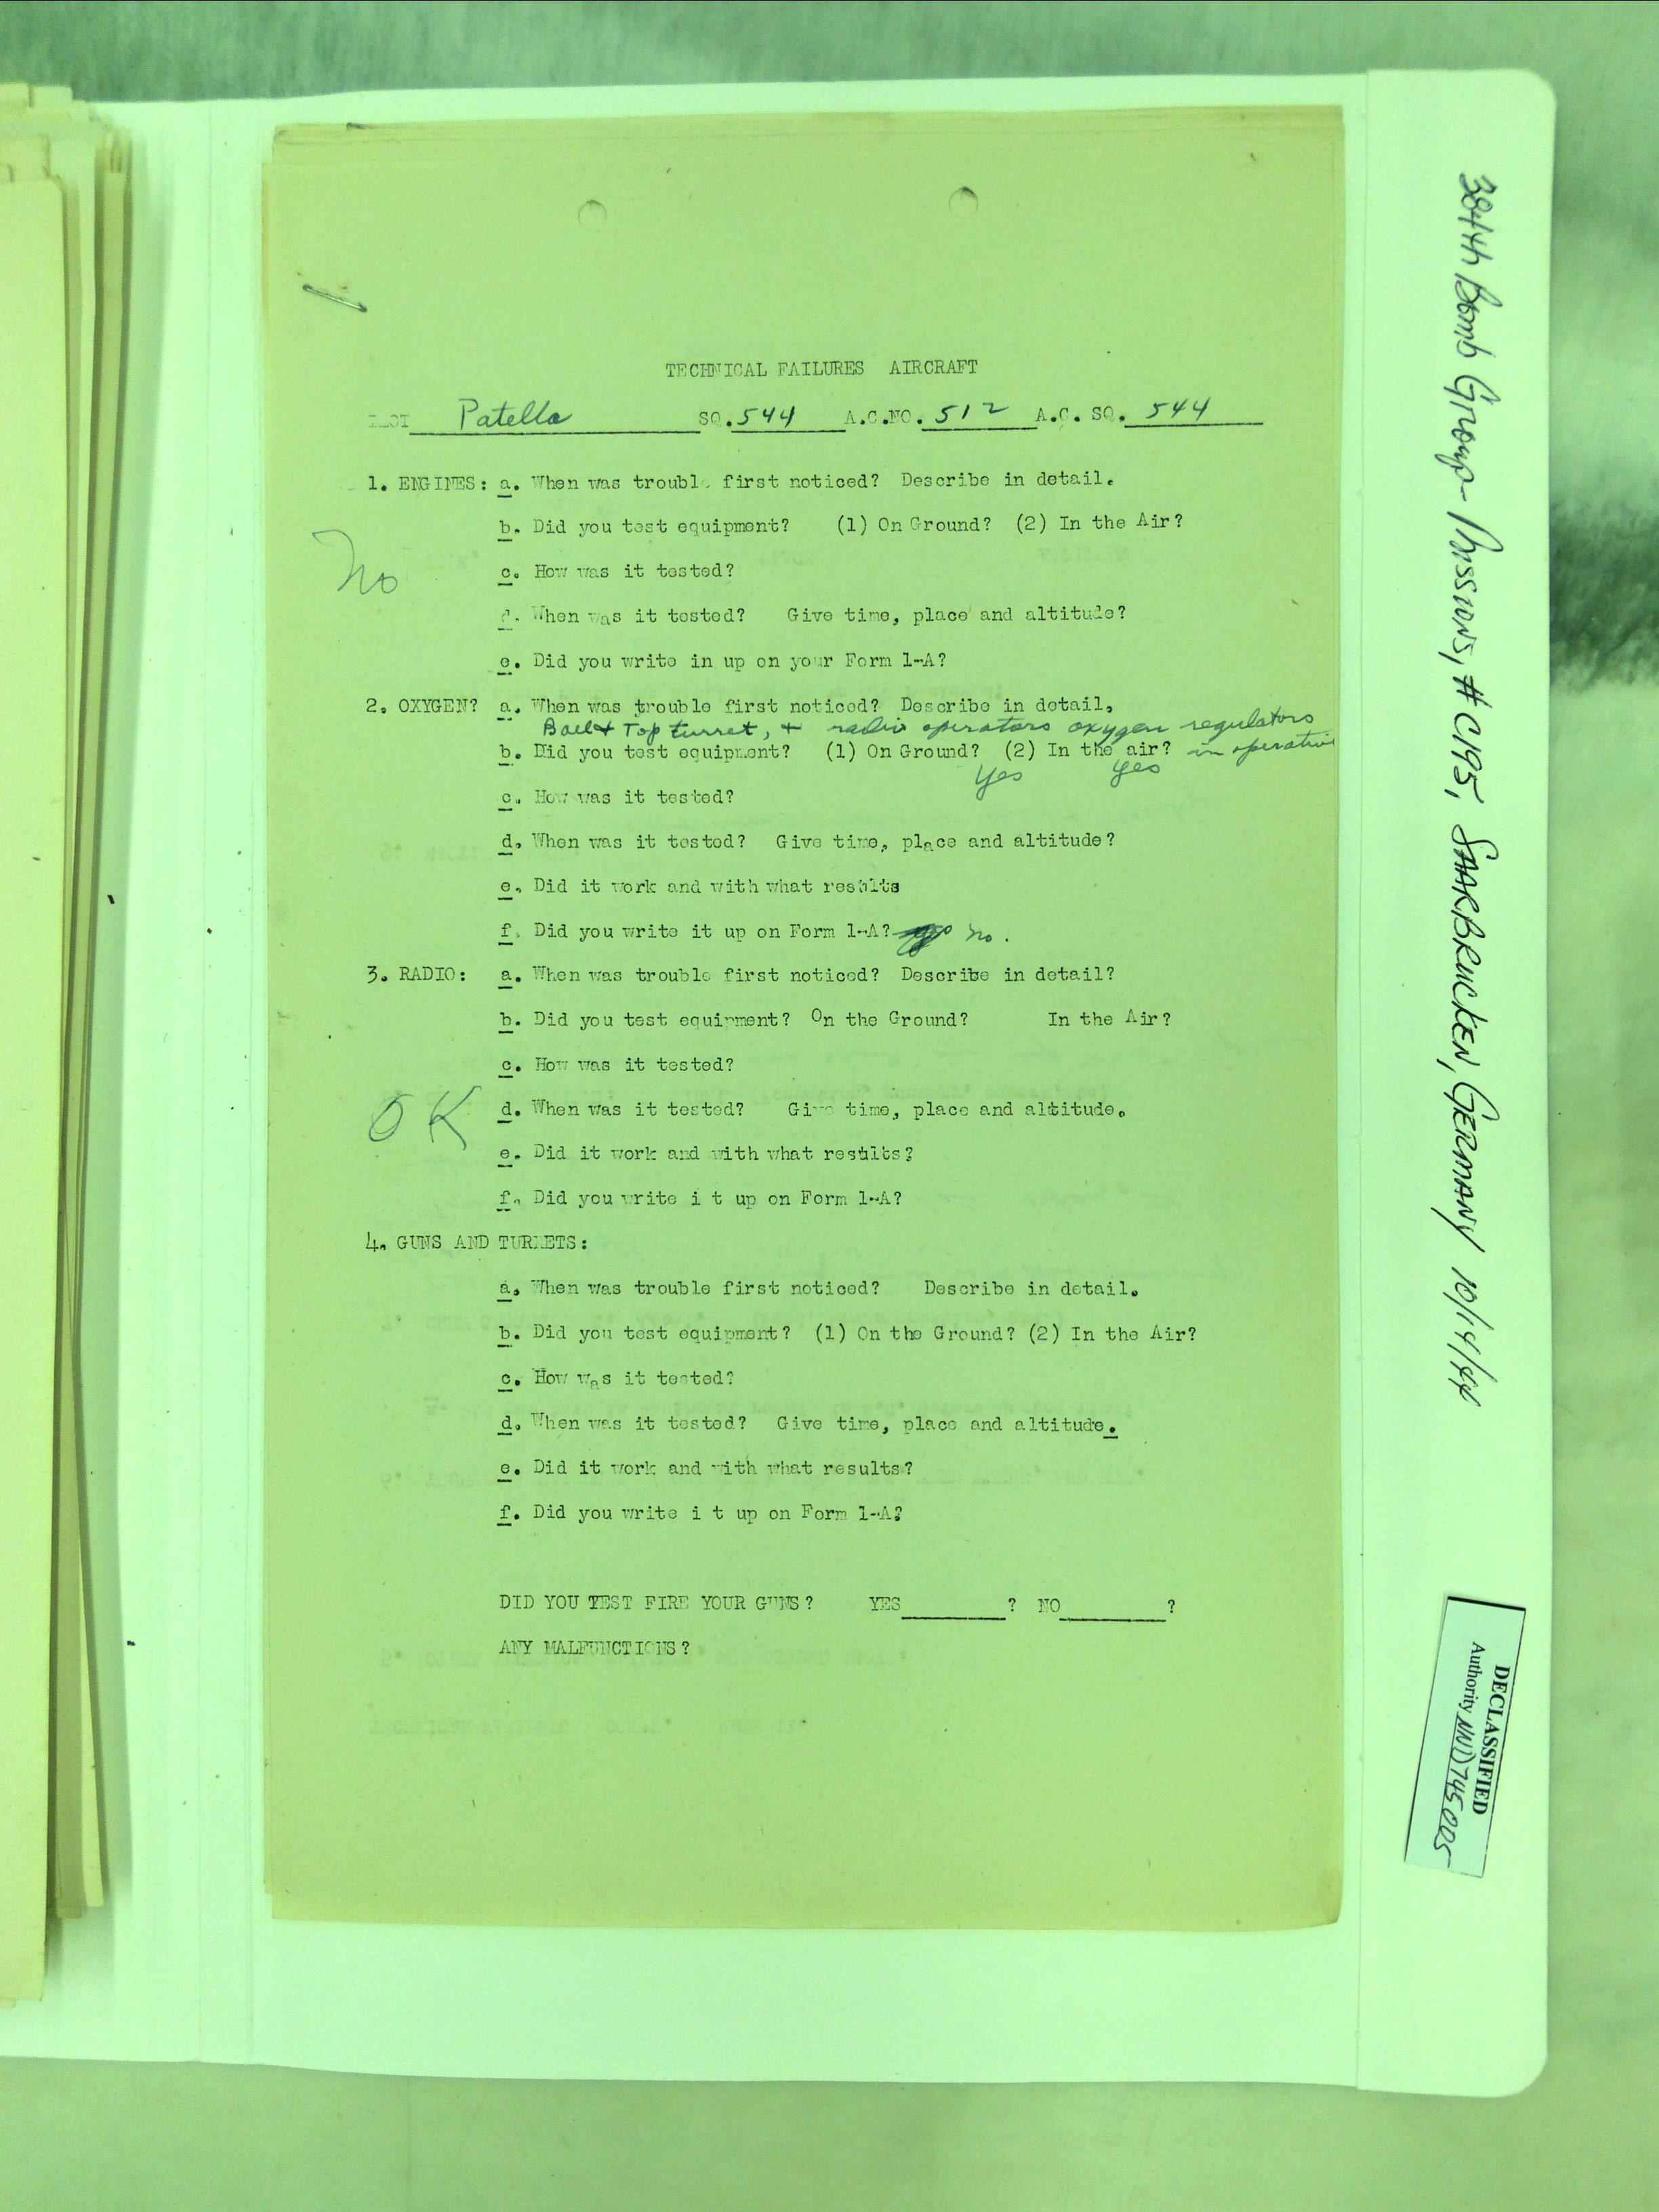 TECHNICAL FAILURES AIRCRAFT
Patella SQ. 544 A.C.NO. 512 A.C. SQ. 544
1. ENGINES: a. When was trouble first noticed? Describe in detail.
b. Did you test equipment? (1) On Ground? (2) In the Air?
No
c. How was it tested?
d. When was it tested? Give time, place and altitude?
e. Did you write in up on your Form 1-A?
2. OXYGEN? a. When was trouble first noticed? Describe in detail,
Ball & Top turret, + radio operators oxygen regulators
b. Did you test equipment? (1) On Ground? (2) In the air? in operative
Yes Yes
c. How was it tested?
d. When was it tested? Give time, place and altitude?
e. Did it work and with what results
f. Did you write it up on Form 1-A? no.
3. RADIO: a. When was trouble first noticed? Describe in detail?
b. Did you test equipment? On the Ground? In the Air?
c. How was it tested?
OK
d. When was it tested? Give time, place and altitude.
e. Did it work and with what results?
f. Did you write i t up on Form 1-A?
4. GUNS AND TURRETS:
a. When was trouble first noticed? Describe in detail.
b. Did you test equipment? (1) On the Ground? (2) In the Air?
c. How was it tested?
d. When was it tested? Give time, place and altitude.
e. Did it work and with what results?
f. Did you write i t up on Form 1-A?
DID YOU TEST FIRE YOUR GUNS? YES ? NO ?
ANY MALFUNCTIONS?
384th Bomb Group - Missions, # C195, SAARBRUCKEN, GERMANY 10/14/44
DECLASSIFIED
Authority NND745005